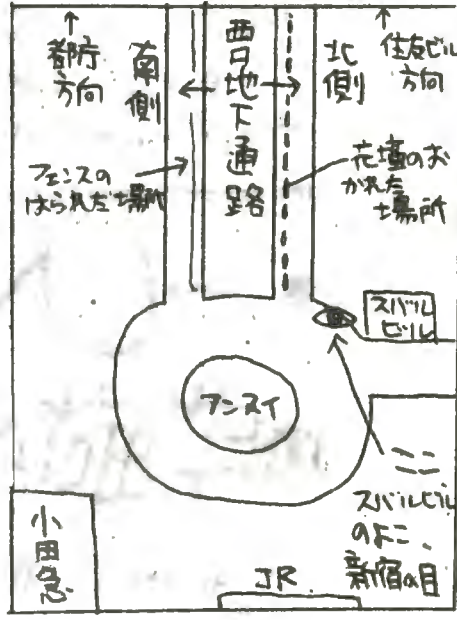 ↑
都庁
方向
南
側
西口地下通路
北
側
↑
住友ビル
方向
フェンスの
はられた場所
花壇のお
かれた
場所
スバル
ビル
アンスイ
ここ
スバルビル
のよこ、
新宿の目
小田急
JR